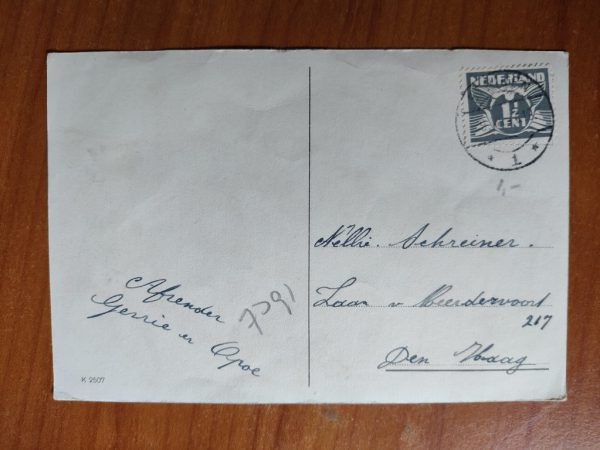 NEDERLAND
1½
CENT
* 1 *
1,-
Nellie. Schreiner.
Laan v Meerdervoort
217
Den Haag
Afzender
Gerrie en Opoe
K 2507